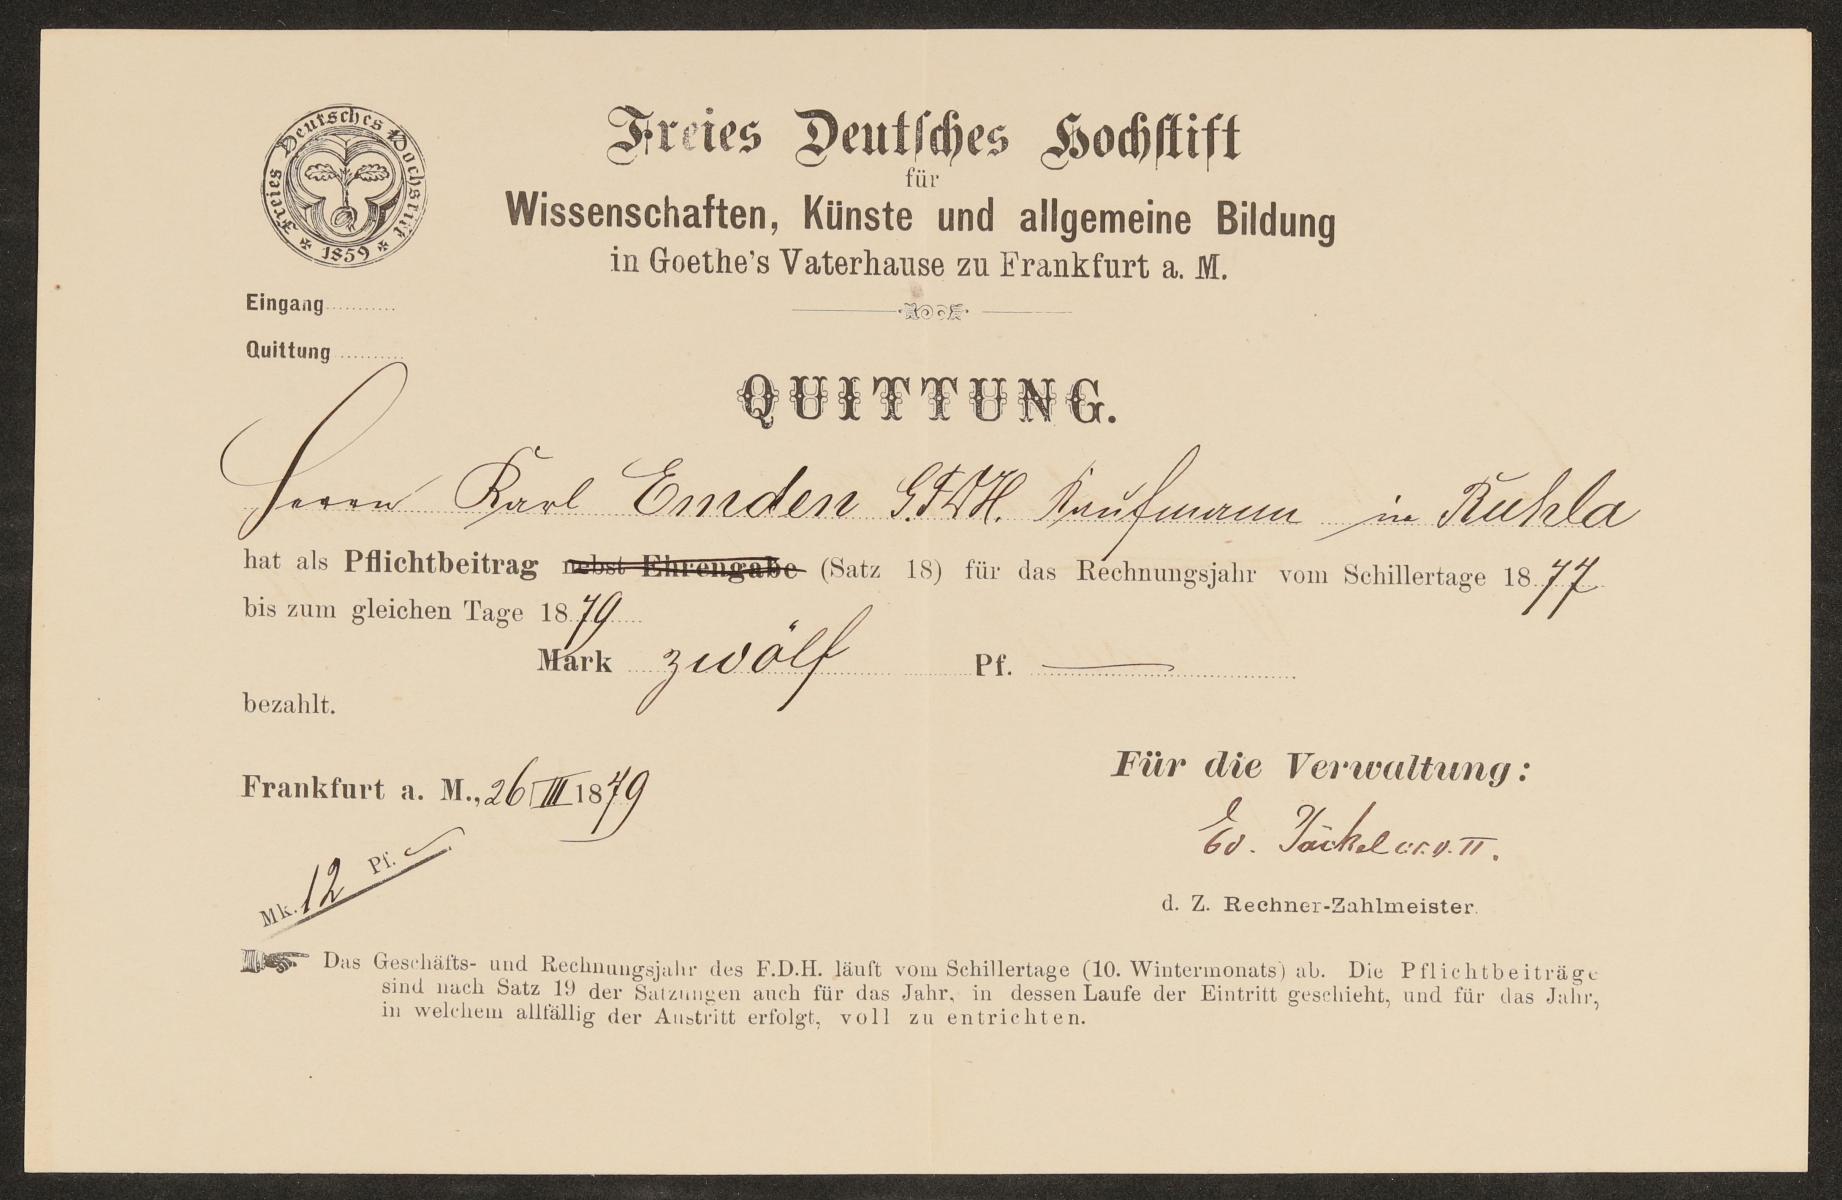 Freies Deutsches Hochstift
* 1859 *
Freies Deutſches Hochſtift
für
Wissenschaften, Künste und allgemeine Bildung
in Goethe's Vaterhause zu Frankfurt a. M.
Eingang
Quittung
QUITTUNG.
Herrn Karl Emden G.FDH. Kaufmann in Ruhla
hat als Pflichtbeitrag nebst Ehrengabe (Satz 18) für das Rechnungsjahr vom Schillertage 1877
bis zum gleichen Tage 1879
Mark zwölf Pf. —
bezahlt.
Für die Verwaltung:
Frankfurt a. M., 26/III 1879
Ed. Jäckel
Mk. 12 Pf. —
d. Z. Rechner-Zahlmeister.
Das Geschäfts- und Rechnungsjahr des F.D.H. läuft vom Schillertage (10. Wintermonats) ab. Die Pflichtbeiträge
sind nach Satz 19 der Satzungen auch für das Jahr, in dessen Laufe der Eintritt geschieht, und für das Jahr,
in welchem allfällig der Austritt erfolgt, voll zu entrichten.